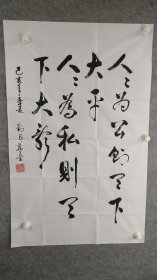 人人为公則天下
大平
人人為私則天
下大亂
己亥年季夏